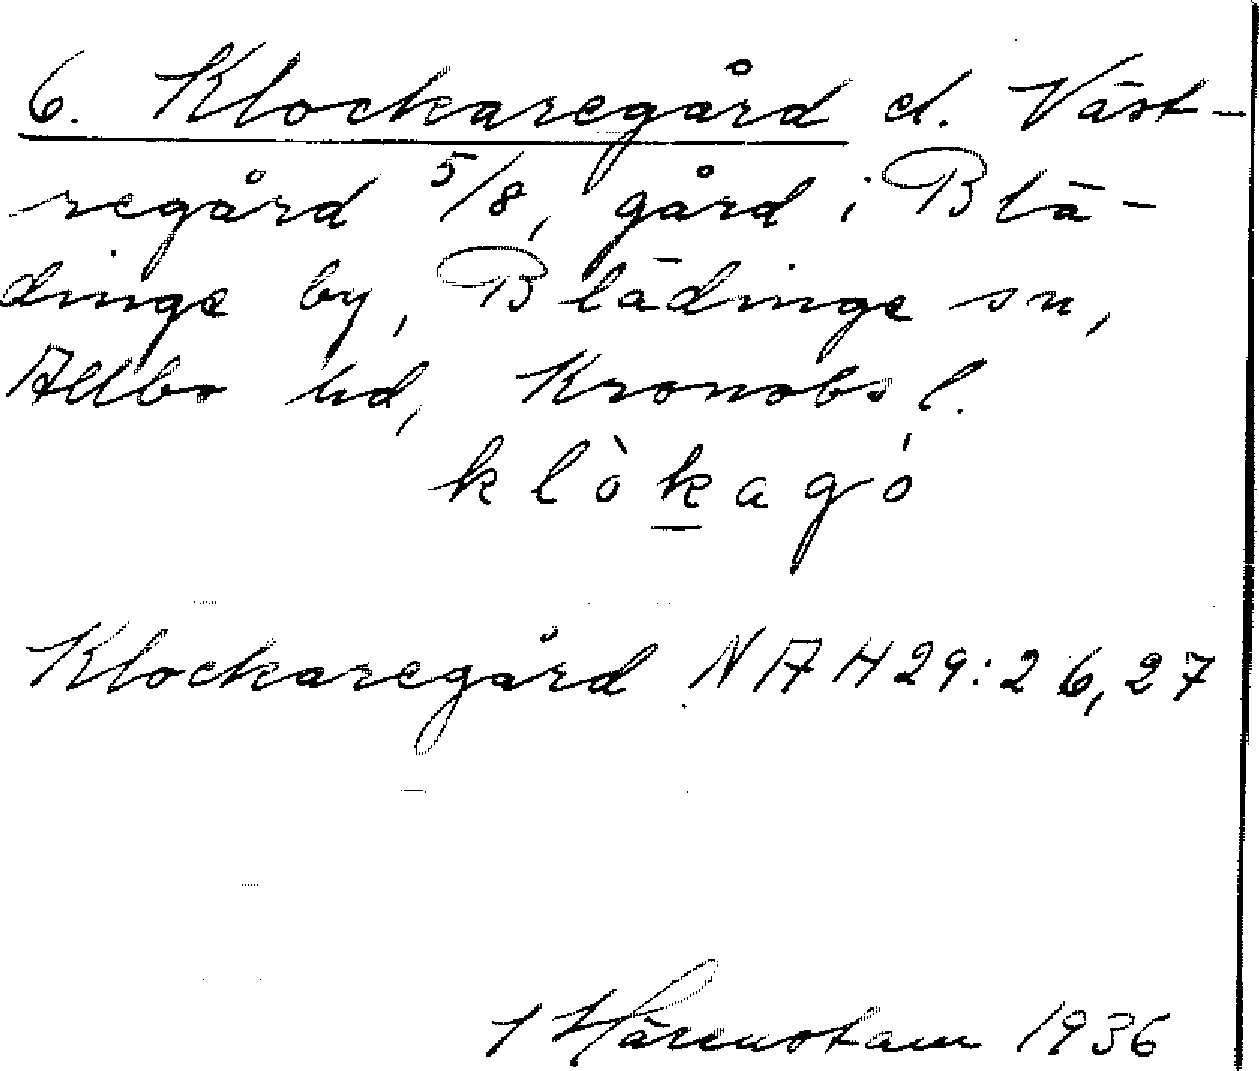 6. Klockaregård el. Väst-
regård 5/8, gård i Blä-
dinge by, Blädinge sn,
Allbo hd, Kronobs l.
klòkagó
Klockaregård NAH29:26,27
Härenstam 1936